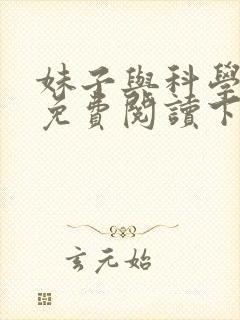 妹子與科學
免費閱讀下
玄元始